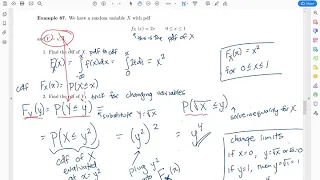 Example 87. We have a random variable X with pdf
f_X (x) = 2x    0 ≤ x ≤ 1
this is the pdf of X
1. Find the cdf of X. pdf to cdf
F_X(x) = ∫ f(x)dx = ∫ 2xdx = x²
F_X(x) = x²
for 0≤x≤1
cdf F_X(x) = P(X≤x)
2. Find the pdf of
trick for changing variables
F_Y(y) = P(Y≤y) = P(√X ≤y)
substitute Y=√X
solve inequality for X
= P(X≤y²) = (y²)² = y⁴
cdf of X
evaluated
at x=y²
plug y²
into F_X(x)
change limits
if x=0, y=√x or √0=0
if y=1, then y=√1=1